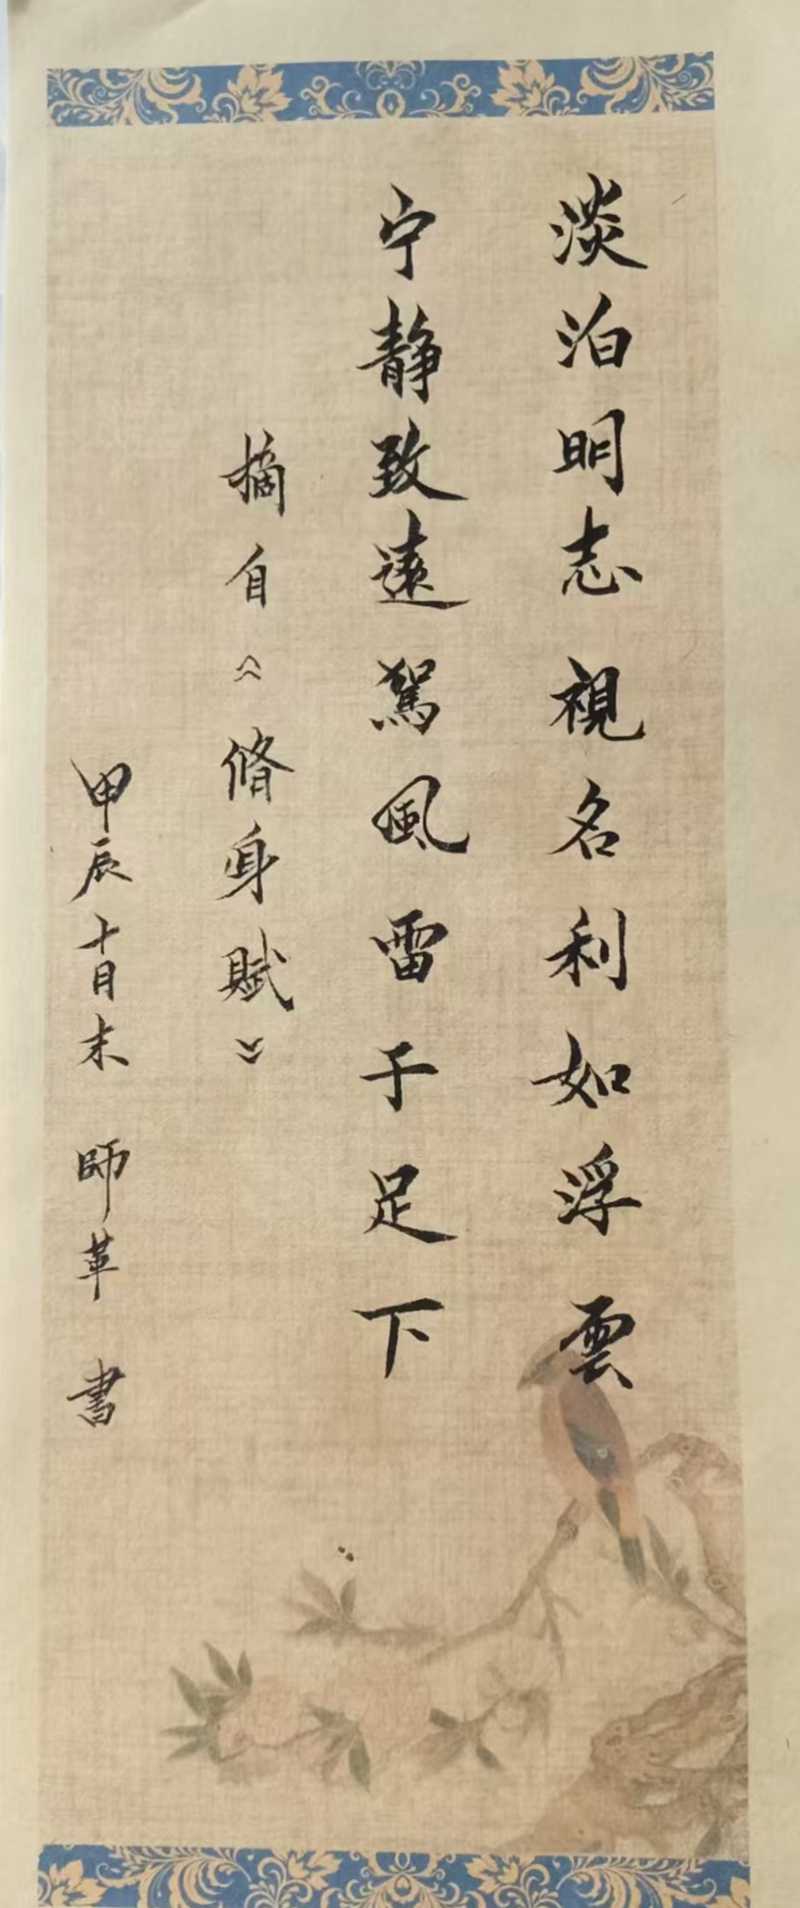 淡泊明志視名利如浮雲
宁静致遠駕風雷于足下
摘自《脩身賦》
甲辰十月末 師革 書